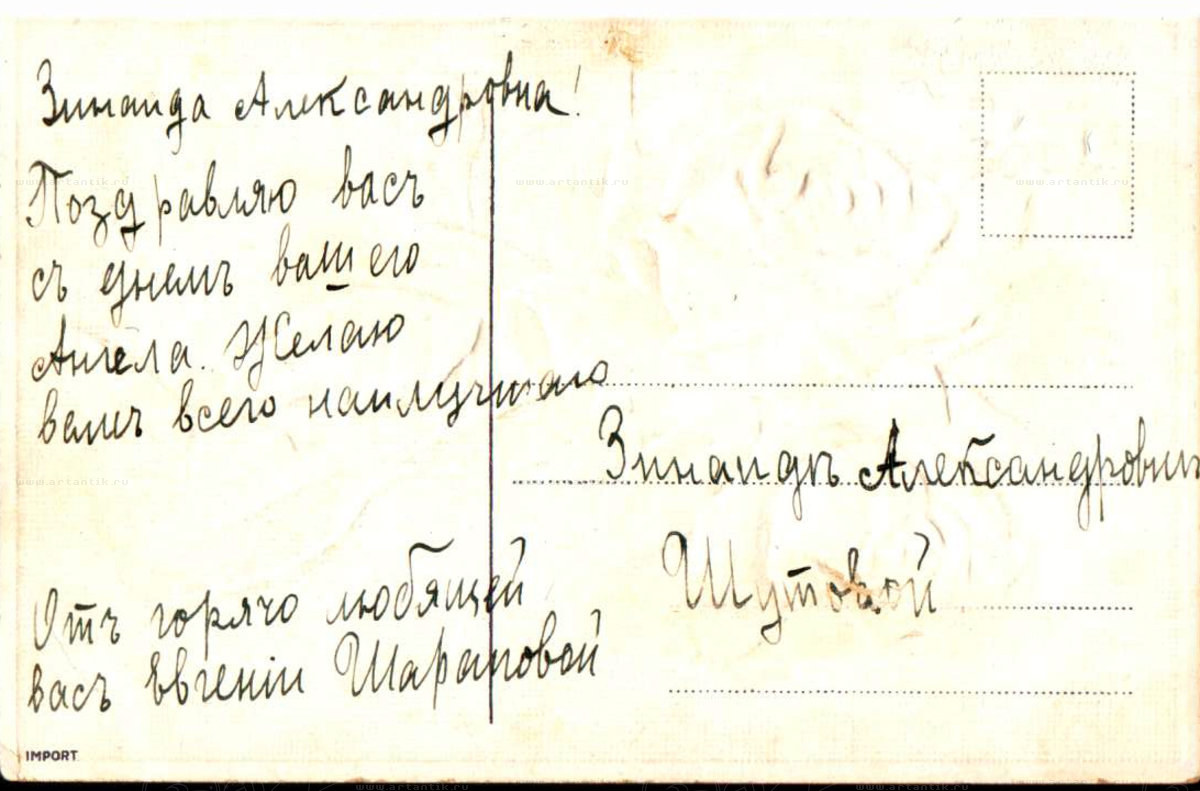 Зинаида Александровна!
Поздравляю васъ
съ днемъ вашего
Ангела. Желаю
вамъ всего наилучшаго
Отъ горячо любящей
васъ Евгеніи Шараповой
Зинаидѣ Александровнѣ
Шутовой
IMPORT
www.artantik.ru